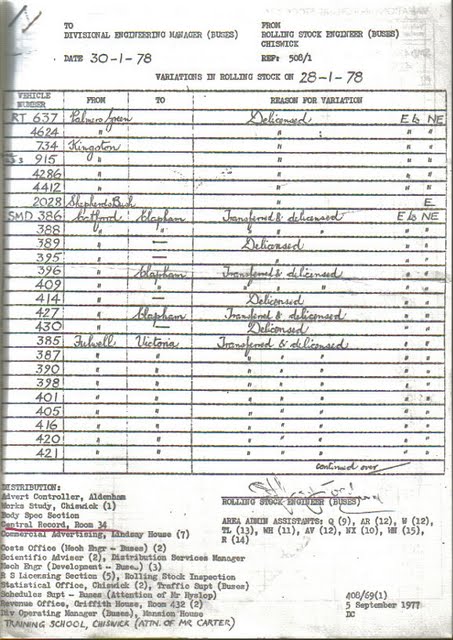 TO FROM
DIVISIONAL ENGINEERING MANAGER (BUSES) ROLLING STOCK ENGINEER (BUSES)
CHISWICK
DATE 30-1-78 REF: 508/1
VARIATIONS IN ROLLING STOCK ON 28-1-78
VEHICLE NUMBER FROM TO REASON FOR VARIATION
RT 637 Palmers Green Delicensed E to NE
4624 " " " "
734 Kingston " " "
915 " " " "
4286 " " " "
4412 " " " "
2028 Shepherds Bush E
SMD 386 Catford Clapham Transferred & delicensed E to NE
388 " " " " " " "
389 " — Delicensed " "
395 " — " " "
396 " Clapham Transferred & delicensed " "
409 " " " " " " "
414 " — Delicensed " "
427 " Clapham Transferred & delicensed " "
430 " — Delicensed " "
385 Fulwell Victoria Transferred & delicensed " "
387 " " " " " " "
390 " " " " " " "
398 " " " " " " "
401 " " " " " " "
405 " " " " " " "
416 " " " " " " "
420 " " " " " " "
421 " " " " " " "
continued over
DISTRIBUTION:
Advert Controller, Aldenham
Works Study, Chiswick (1)
Body Spec Section
Central Record, Room 34
Commercial Advertising, Lindsay House (7)
Costs Office (Mech Engr - Buses) (2)
Scientific Adviser (2), Distribution Services Manager
Mech Engr (Development - Bus) (3)
R S Licensing Section (5), Rolling Stock Inspection
Statistical Office, Chiswick (2), Traffic Supt (Buses)
Schedules Supt - Buses (Attention of Mr Hyslop)
Revenue Office, Griffith House, Room 432 (2)
Div Operating Manager (Buses), Mansion House
TRAINING SCHOOL, CHISWICK (ATTN. OF MR CARTER)
ROLLING STOCK ENGINEER (BUSES)
AREA ADMIN ASSISTANTS: Q (9), AR (12), W (12),
TL (13), WH (11), AV (12), NX (10), WN (15),
R (14)
408/69(1)
5 September 1977
DC